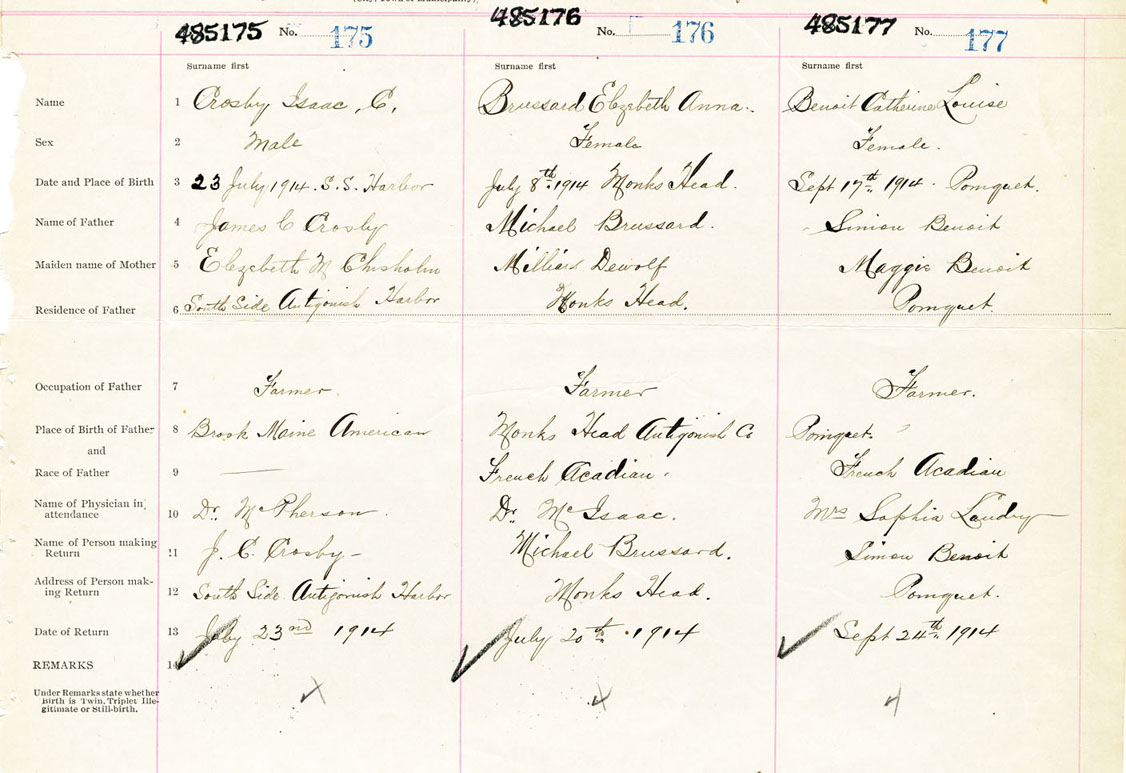 485175 No. 175 485176 No. 176 485177 No. 177
Surname first Surname first Surname first
Name 1 Crosby Isaac, C. Brussard Elezebeth Anna. Benoit Catherine Louise
Sex 2 Male Female Female.
Date and Place of Birth 3 23 July 1914. S. S. Harbor July 8th 1914 Monks Head. Sept 17th 1914. Pomquet.
Name of Father 4 James C Crosby Michael Brussard. Simon Benoit
Maiden name of Mother 5 Elezebeth M Chisholm Dewolf Maggie Benoit
Residence of Father 6 South Side Antigonish Harbor Monks Head. Pomquet.
Occupation of Father 7 Farmer Farmer Farmer.
Place of Birth of Father 8 Brook Maine American Monks Head Antigonish Co Pomquet.
and
Race of Father 9 — French Acadian. French Acadian
Name of Physician in attendance 10 Dr. McPherson. Dr. McIsaac. Mrs Sophia Landry
Name of Person making Return 11 J. C. Crosby – Michael Brussard. Simon Benoit
Address of Person making Return 12 South Side Antigonish Harbor Monks Head. Pomquet.
Date of Return 13 July 23nd 1914 July 20th 1914 Sept 24th 1914
REMARKS 14
Under Remarks state whether
Birth is Twin, Triplet, Ille-
gitimate or Still-birth.